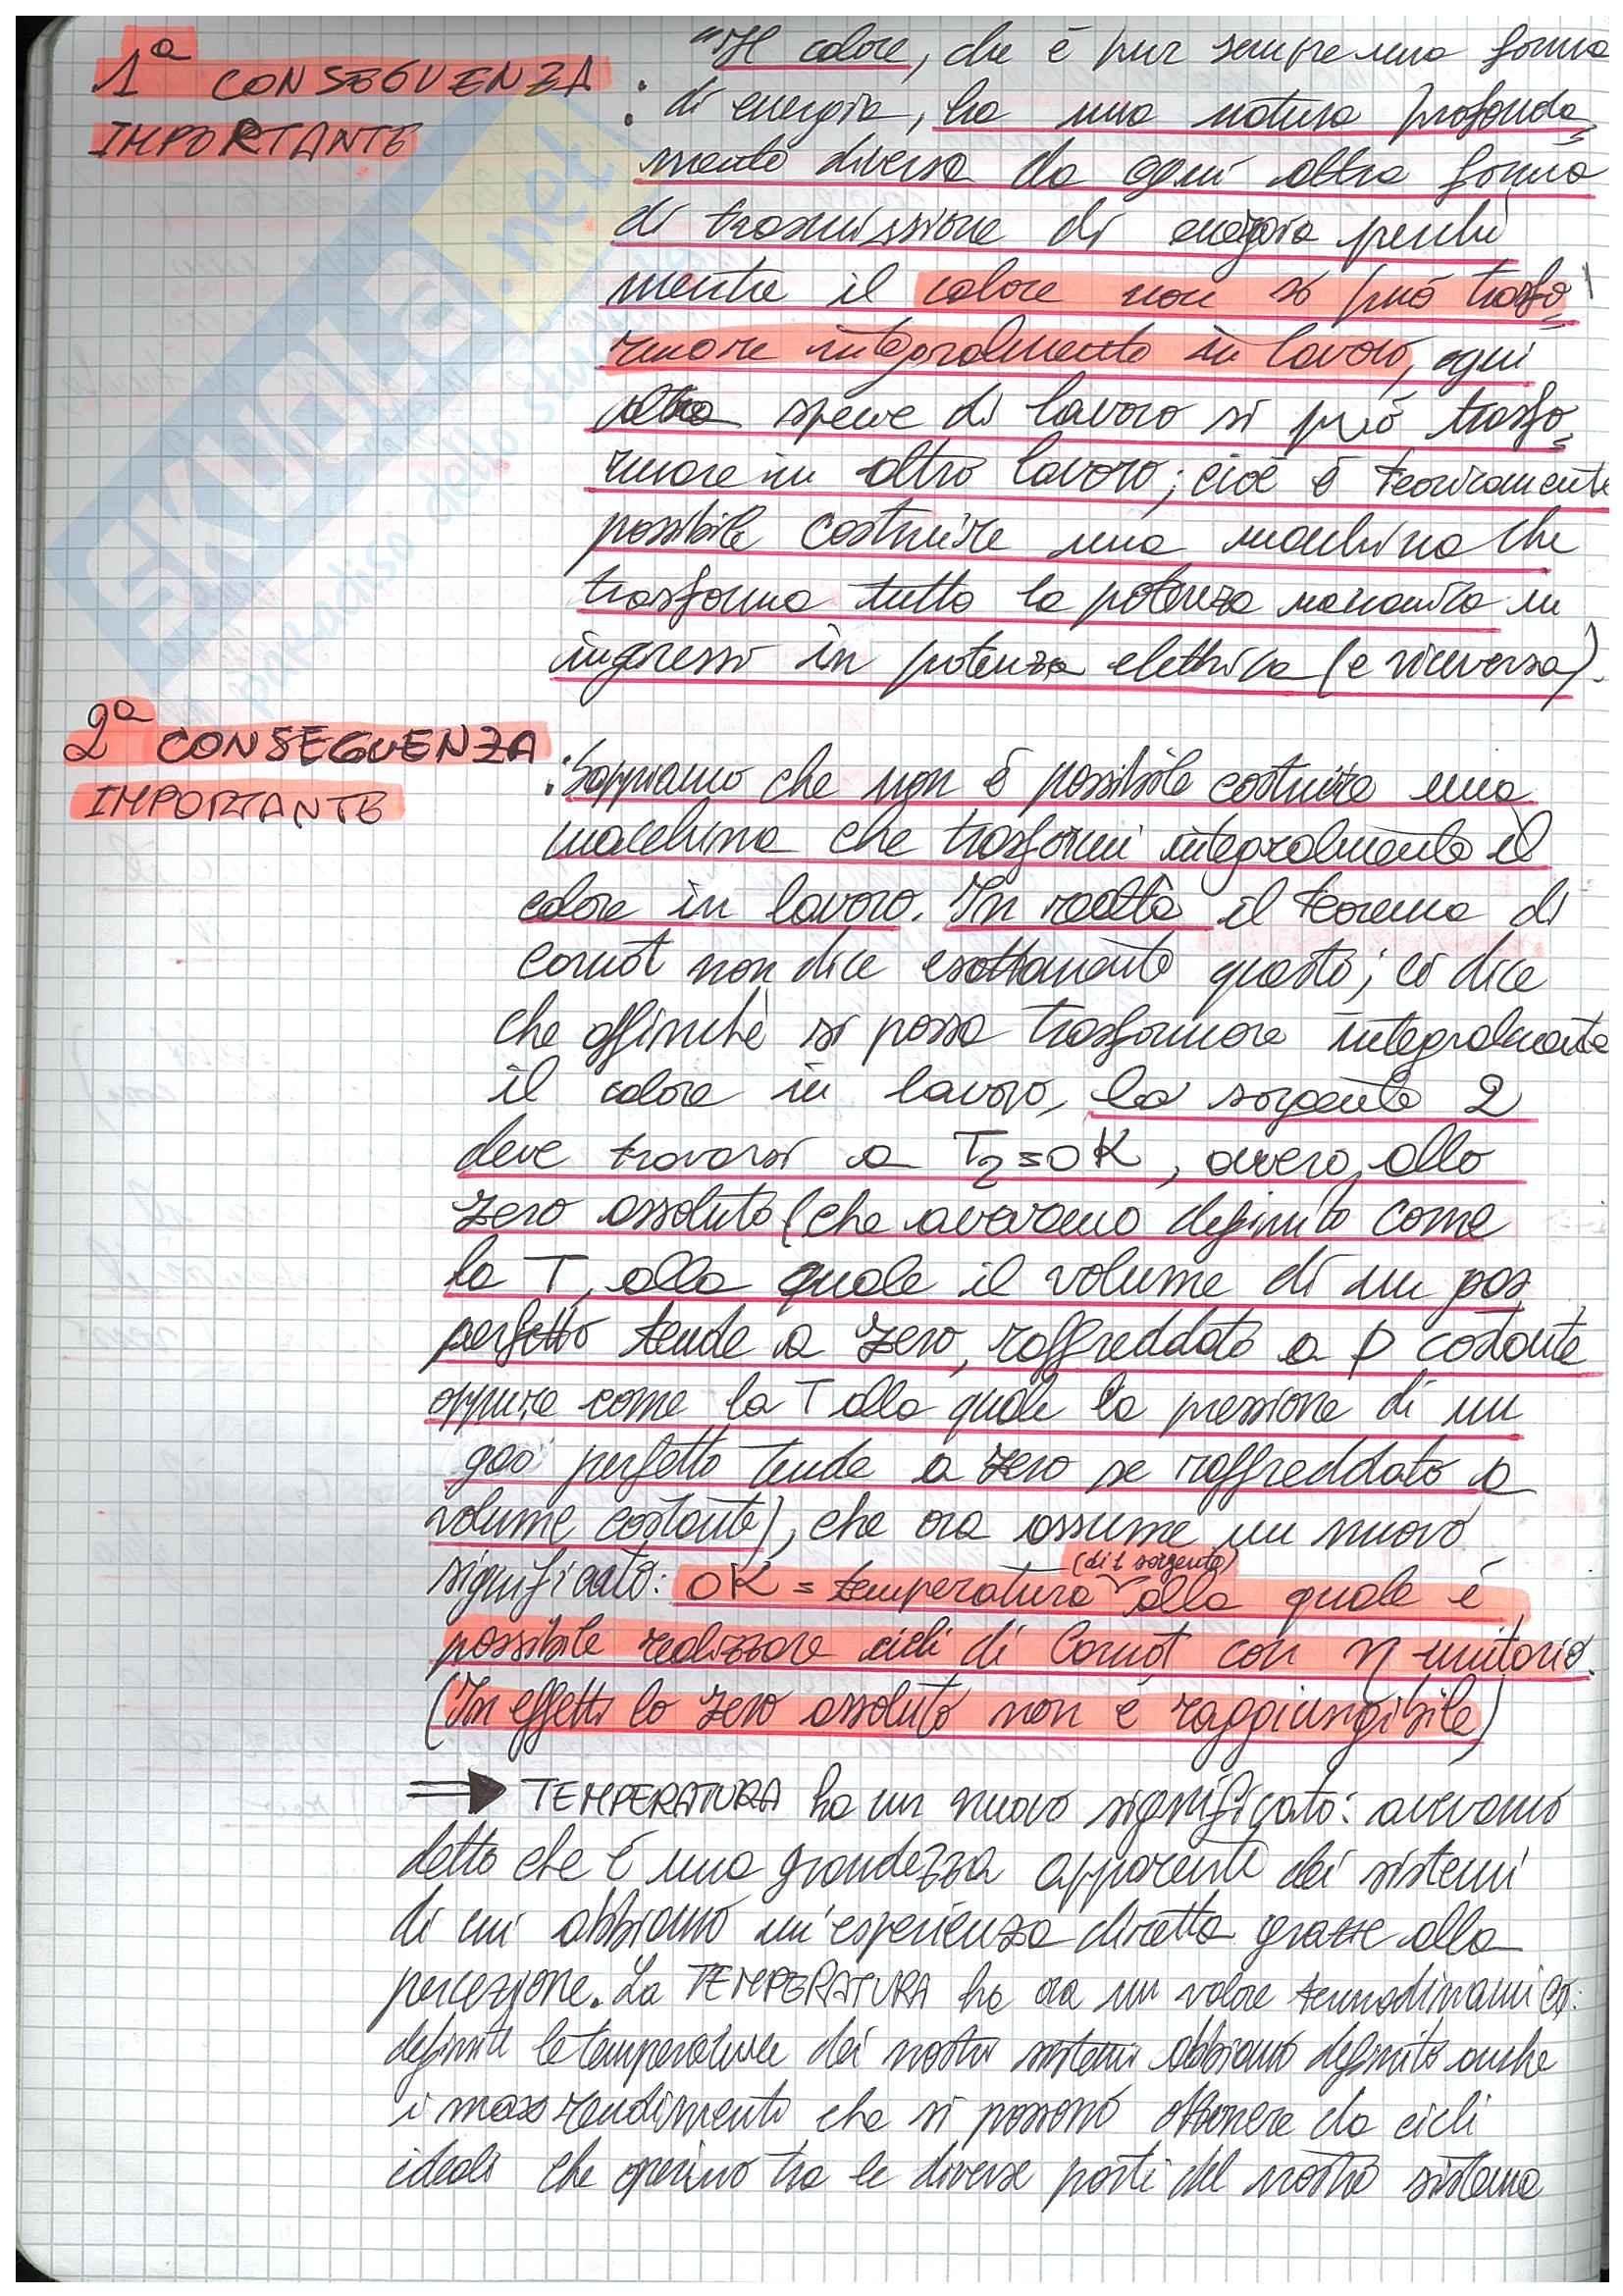 1ª CONSEGUENZA
IMPORTANTE
"Il calore, che è pur sempre una forma
: di energia, ha una natura profonda=
mente diversa da ogni altra forma
di trasmissione di energia perché
mentre il calore non si può trasfo=
rmare integralmente in lavoro, ogni
altra specie di lavoro si può trasfo=
rmare in altro lavoro; cioè è teoricamente
possibile costruire una macchina che
trasforma tutta la potenza meccanica in
ingresso in potenza elettrica (e viceversa).
2ª CONSEGUENZA
IMPORTANTE
: Sappiamo che non è possibile costruire una
macchina che trasformi integralmente il
calore in lavoro. In realtà il teorema di
Carnot non dice esattamente questo; ci dice
che affinché si possa trasformare integralmente
il calore in lavoro, la sorgente 2
deve trovarsi a T2=0K, ovvero, allo
zero assoluto (che avevamo definito come
la T, alla quale il volume di un gas
perfetto tende a zero, raffreddato a p costante
oppure come la T alla quale la pressione di un
gas perfetto tende a zero se raffreddato a
volume costante), che ora assume un nuovo
(di 1 sorgente)
significato: 0K = temperatura alla quale è
possibile realizzare cicli di Carnot con η unitario.
(In effetti lo zero assoluto non è raggiungibile)
⇒ TEMPERATURA ha un nuovo significato: avevamo
detto che è una grandezza apparente dei sistemi
di cui abbiamo un'esperienza diretta grazie alla
percezione. La TEMPERATURA ha ora un valore termodinamico:
definite le temperature dei nostri sistemi abbiamo definito anche
i max rendimenti che si possono ottenere da cicli
ideali che operino tra le diverse parti del nostro sistema
SKUOLA.net
paradiso dello